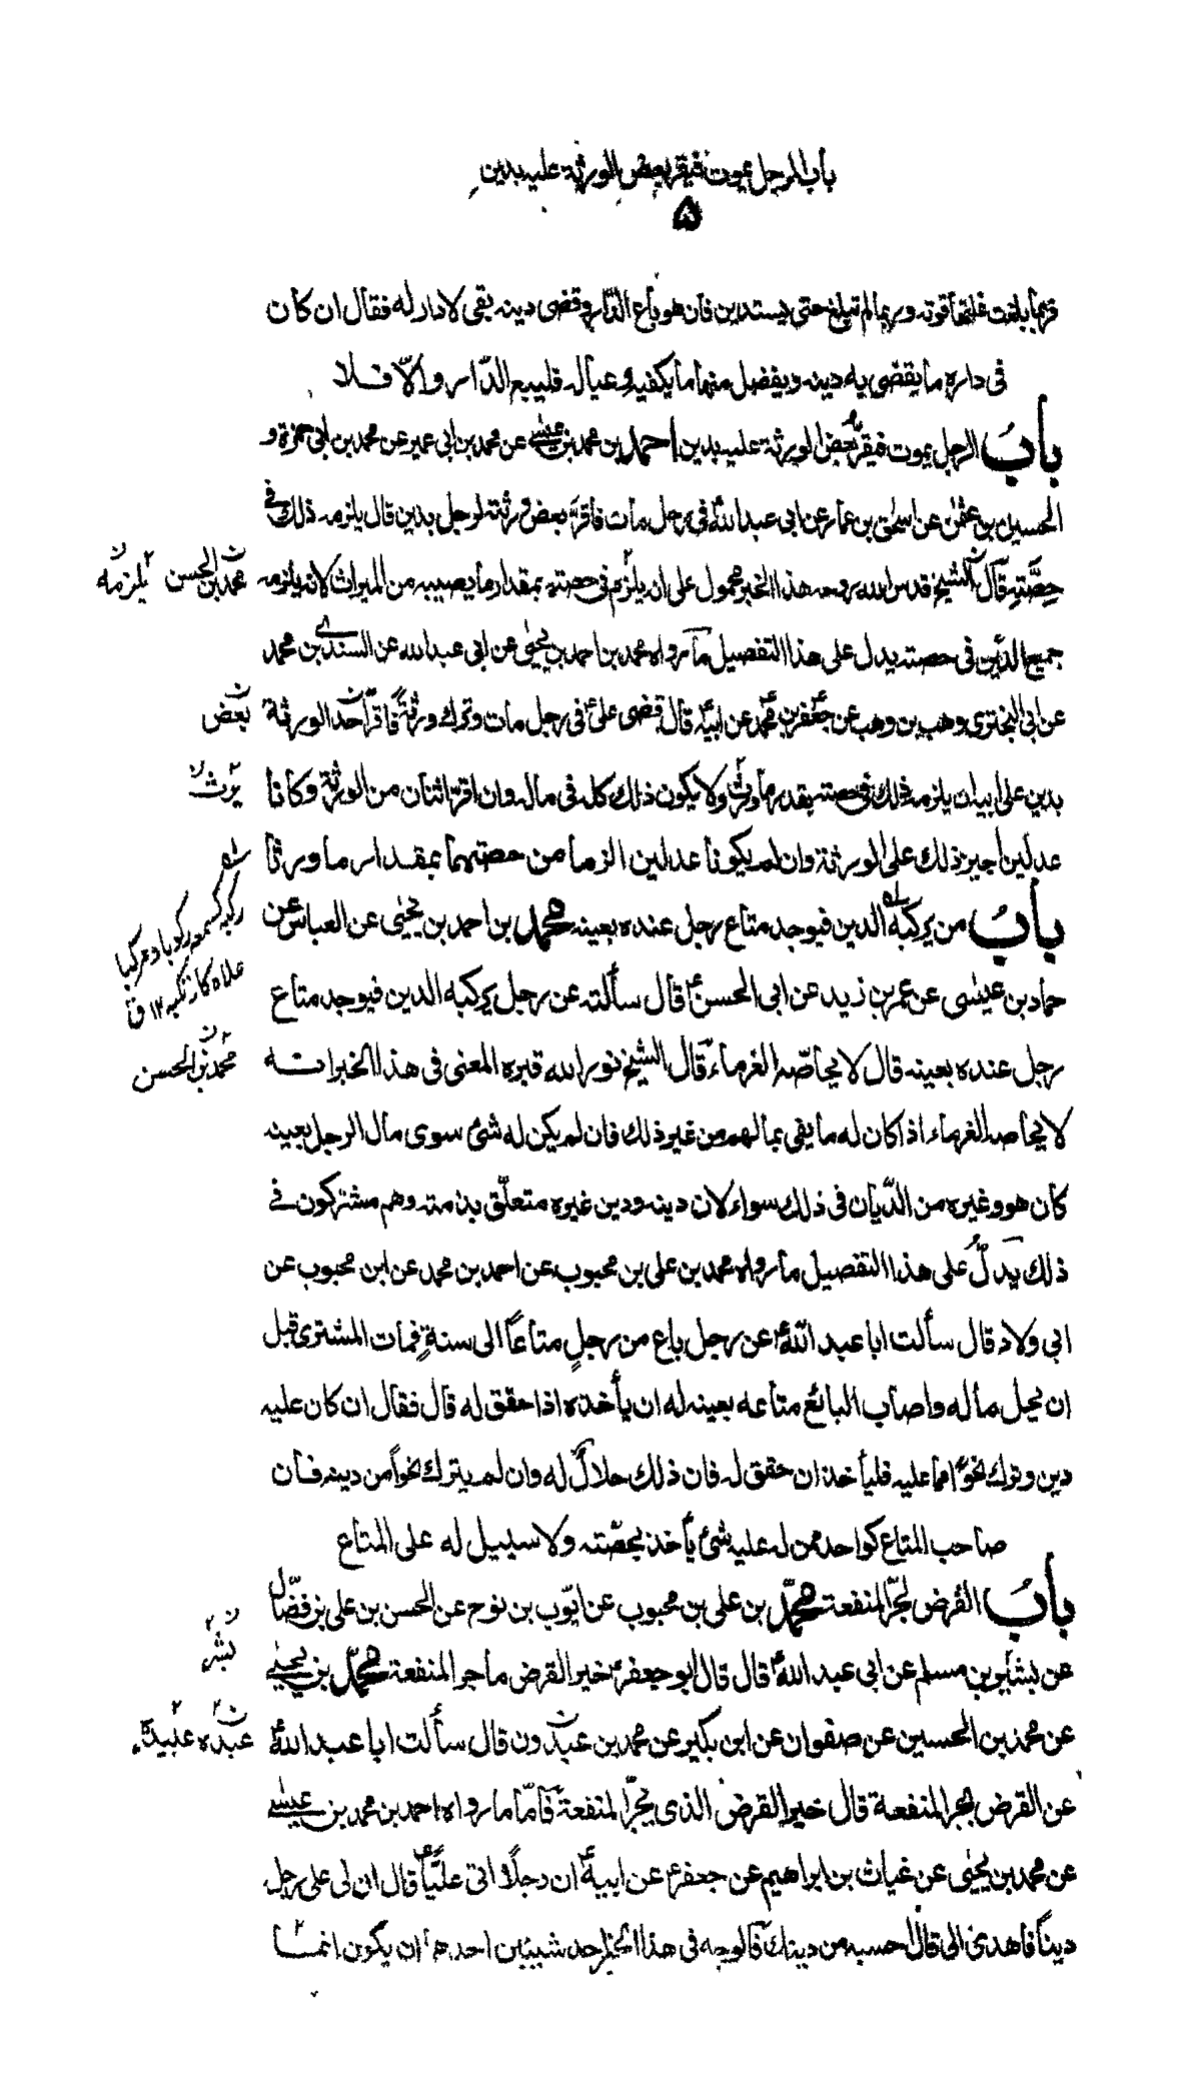 باب الرجل يموت فيقر بعض الورثة عليه بدين
۵
فربما بلغت غلتها قوته وربما لم تبلغ حتى يستدين فان هو باع الدّار وقضى دينه بقى لا دار له فقال ان كان
فى داره ما يقضى به دينه ويفضل منها ما يكفيه وعياله فليبع الدّار والّا فلا
بابُ الرجل يموت فيقرّ بعض الورثة عليه بدين احمد بن محمد بن عيسى عن محمد بن ابى عمير عن محمد بن ابى حمزة و
الحسين بن عثمٰن عن اسحٰق بن عمار عن ابى عبد اللهؑ فى رجل مات فاقرّ بعض ورثته لرجل بدين قال يلزمه ذلك فى
حصّته قال الشيخ قدس الله روحه هذا الخبر محمول على ان يلزم فى حصته بمقدار ما يصيبه من الميراث لا انه يلزمه
محمد بن الحسن ن يلزمه ٢ ن
جميع الدّين فى حصته يدل على هذا التفصيل ما رواه محمد بن احمد بن يحيٰى عن ابى عبد الله عن السندى بن محمد
عن ابى البخترى وهب بن وهب عن جعفر بن محمد عن ابيهؑ قال قضى علىؑ فى رجل مات وترك ورثةً فاقرّ احد الورثة
بعض ن
بدين على ابيه ان يلزمه ذلك فى حصته بقدر ما ورث ولا يكون ذلك كله فى ماله وان اقرّ اثنان من الورثة وكانا
يرث ٢ ن
عدلين اجيز ذلك على الورثة وان لم يكونا عدلين الزما من حصتهما بمقدار ما ورثا
بابُ من يركبه الدين فيوجد متاع رجل عنده بعينه محمد بن احمد بن يحيٰى عن العباس عن
حماد بن عيسٰى عن عمر بن زيد عن ابى الحسنؑ قال سألته عن رجل يركبه الدين فيوجد متاع
رجل عنده بعينه قال لا يحاصّه الغرماء قال الشيخ نور الله قبره المعنى فى هذا الخبر انه
محمد بن الحسن ٢ ن
لا يحاصه الغرماء اذا كان له ما يفى بما لهم من غير ذلك فان لم يكن له شئ سوى مال الرجل بعينه
كان هو وغيره من الدّيان فى ذلك سواء لان دينه ودين غيره متعلّق بذمته وهم مشتركون فى
ذلك يدلّ على هذا التفصيل ما رواه محمد بن على بن محبوب عن احمد بن محمد عن ابن محبوب عن
ابى ولاد قال سألت ابا عبد اللهؑ عن رجل باع من رجلٍ متاعاً الى سنةٍ فمات المشترى قبل
ان يحل ماله واصاب البائع متاعه بعينه له ان يأخذه اذا حقق له قال فقال ان كان عليه
دين وترك نحوًا مما عليه فليأخذ ان حقق له فان ذلك حلالٌ له وان لم يترك نحواً من دينه فان
صاحب المتاع كواحد ممن له عليه شئ يأخذ بحصّته ولا سبيل له على المتاع
بابُ القرض لجرّ المنفعة محمّد بن على بن محبوب عن ايّوب بن نوح عن الحسن بن على بن فضّال
عن بشار بن مسلم عن ابى عبد اللهؑ قال قال ابو جعفرؑ خير القرض ما جر المنفعة محمّد بن يحيٰى
بشر ن ٢
عن محمد بن الحسين عن صفوان عن ابن بكير عن محمد بن عبدون قال سألت ابا عبد اللهؑ
عبده ن ٢ عبيدة ٢
عن القرض يجر المنفعة قال خير القرض الذى يجرّ المنفعة فامّا ما رواه احمد بن محمد بن عيسٰى
عن محمد بن يحيٰى عن غياث بن ابراهيم عن جعفرؑ عن ابيهؑ ان رجلًا اتى عليّاًؑ قال ان لى على رجل
ديناً فاهدى الى قال احسبه من دينك فالوجه فى هذا الخبر احد شيئين احدهما ان يكون انما